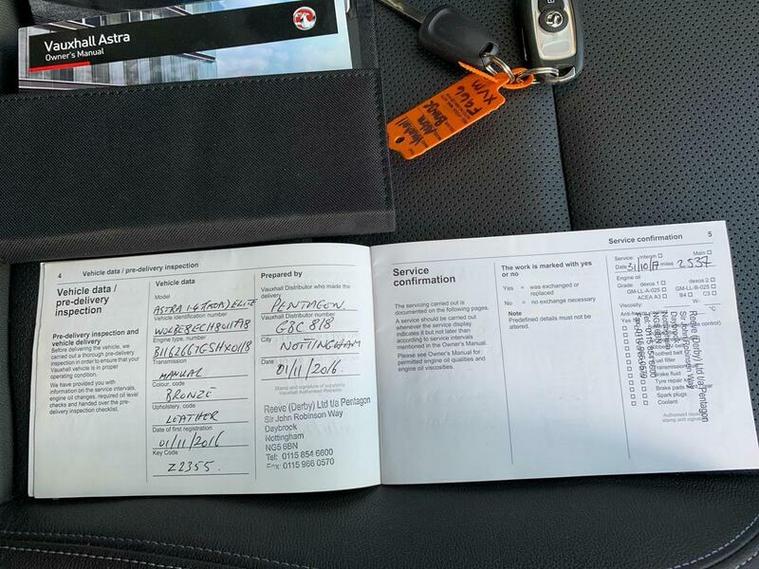 Vauxhall Astra
Owner's Manual
Vauxhall
Astra
Bronze
FG66
XVM
4 Vehicle data / pre-delivery inspection
Vehicle data /
pre-delivery
inspection
Pre-delivery inspection and
vehicle delivery
Before delivering the vehicle, we
carried out a thorough pre-delivery
inspection in order to ensure that your
Vauxhall vehicle is in proper
operating condition.
We have provided you with
information on the service intervals,
engine oil changes, required oil level
checks and handed over the pre-
delivery inspection checklist.
Vehicle data
Model
ASTRA 1.4T ELITE
Vehicle identification number
Engine type, number
Transmission
MANUAL
Colour, code
BRONZE
Upholstery, code
LEATHER
Date of first registration
01/11/2016
Key Code
Z2355.
Prepared by
Vauxhall Distributor who made the
delivery
PENTAGON
Vauxhall Distributor number
GBC 818
City
NOTTINGHAM
Date
01/11/2016.
Stamp and signature of supplying
Vauxhall Authorised Repairer
Reeve (Derby) Ltd t/a Pentagon
Sir John Robinson Way
Daybrook
Nottingham
NG5 6BN
Tel: 0115 854 6600
Fax: 0115 966 0570
Service confirmation 5
Service
confirmation
The servicing carried out is
documented on the following pages.
A service should be carried out
whenever the service display
indicates it but not later than
according to service intervals
mentioned in the Owner's Manual.
Please see Owner's Manual for
permitted engine oil qualities and
engine oil viscosities.
The work is marked with yes
or no
Yes = was exchanged or
replaced
No = no exchange necessary
Note
Predefined details must not be
altered.
Service: Interim Main
Date 31/10/17 miles 2537
Engine oil
Grade dexos 1 dexos 2
GM-LL-A-025 GM-LL-B-025
ACEA A3 B4 C3
Viscosity:
Yes No
Fuel filter
Transmission
Brake fluid
Tyre repair
Brake pads
Spark plugs
Coolant
Reeve (Derby) Ltd t/a Pentagon
Sir John Robinson Way
Daybrook
Nottingham
Tel: 0115 854 6600
Fax: 0115 966 0570
Authorised repairer
stamp and signature